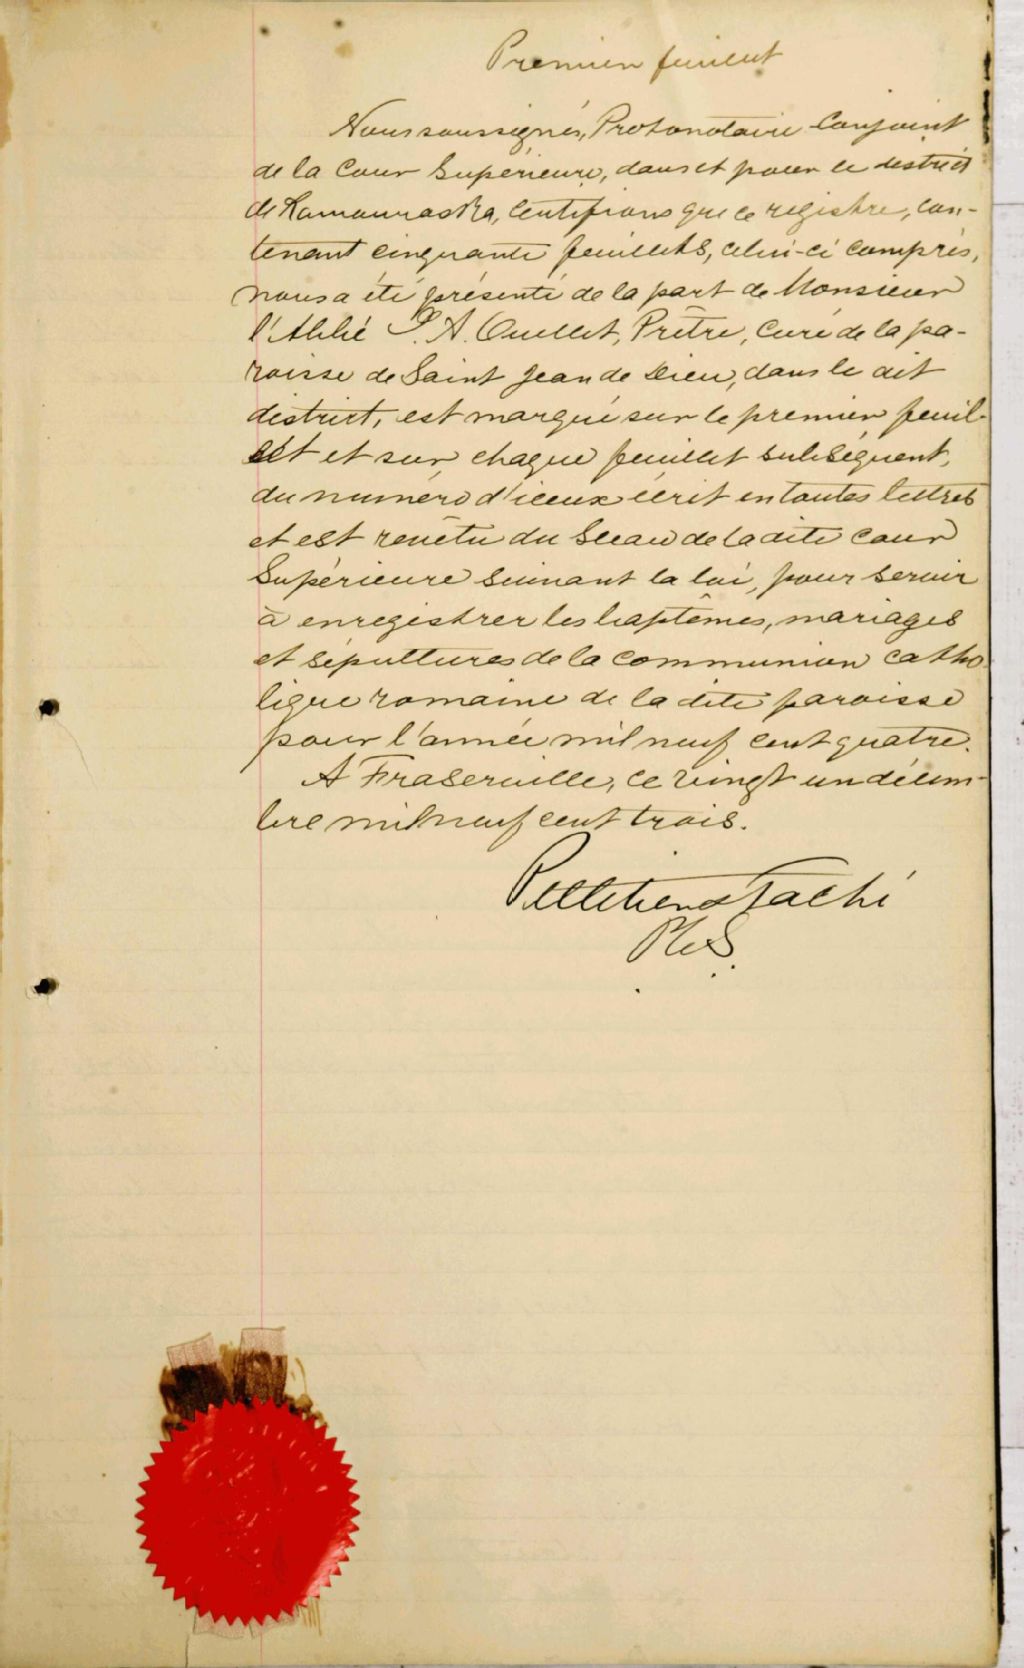 Premier feuillet
Nous soussignés, Protonotaire Conjoint
de la Cour Supérieure, dans et pour le district
de Kamouraska, Certifions que ce registre, con-
tenant cinquante feuillets, celui-ci compris,
nous a été présenté de la part de Monsieur
l'Abbé J. A. Ouellet, Prêtre, Curé de la pa-
roisse de Saint Jean de Dieu, dans le dit
district, est marqué sur le premier feuil-
let et sur chaque feuillet subséquent,
du numéro d'iceux écrit en toutes lettres
et est revêtu du Sceau de la dite Cour
Supérieure suivant la loi, pour servir
à enregistrer les baptêmes, mariages
et sépultures de la communion catho-
lique romaine de la dite paroisse
pour l'année mil neuf cent quatre.
A Fraserville, ce vingt un décem-
bre mil neuf cent trois.
Pelletier & Taché
P.C.S.